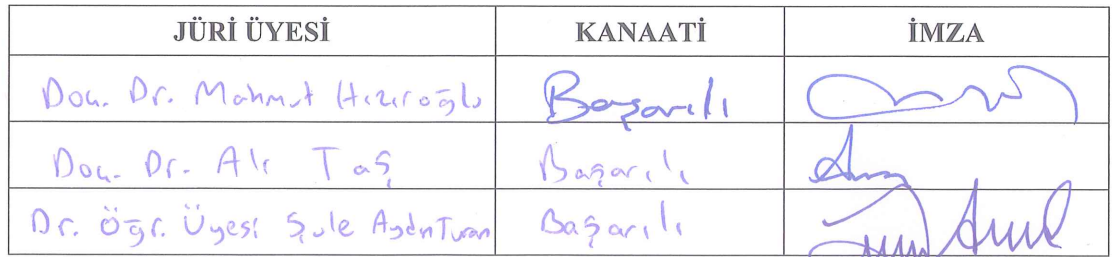 JÜRİ ÜYESİ KANAATİ İMZA
Doç. Dr. Mahmut Hızıroğlu Başarılı
Doç. Dr. Ali Taş Başarılı
Dr. Öğr. Üyesi Şule Aydın Turan Başarılı